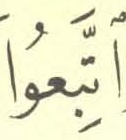 ٱتَّبِعُوا